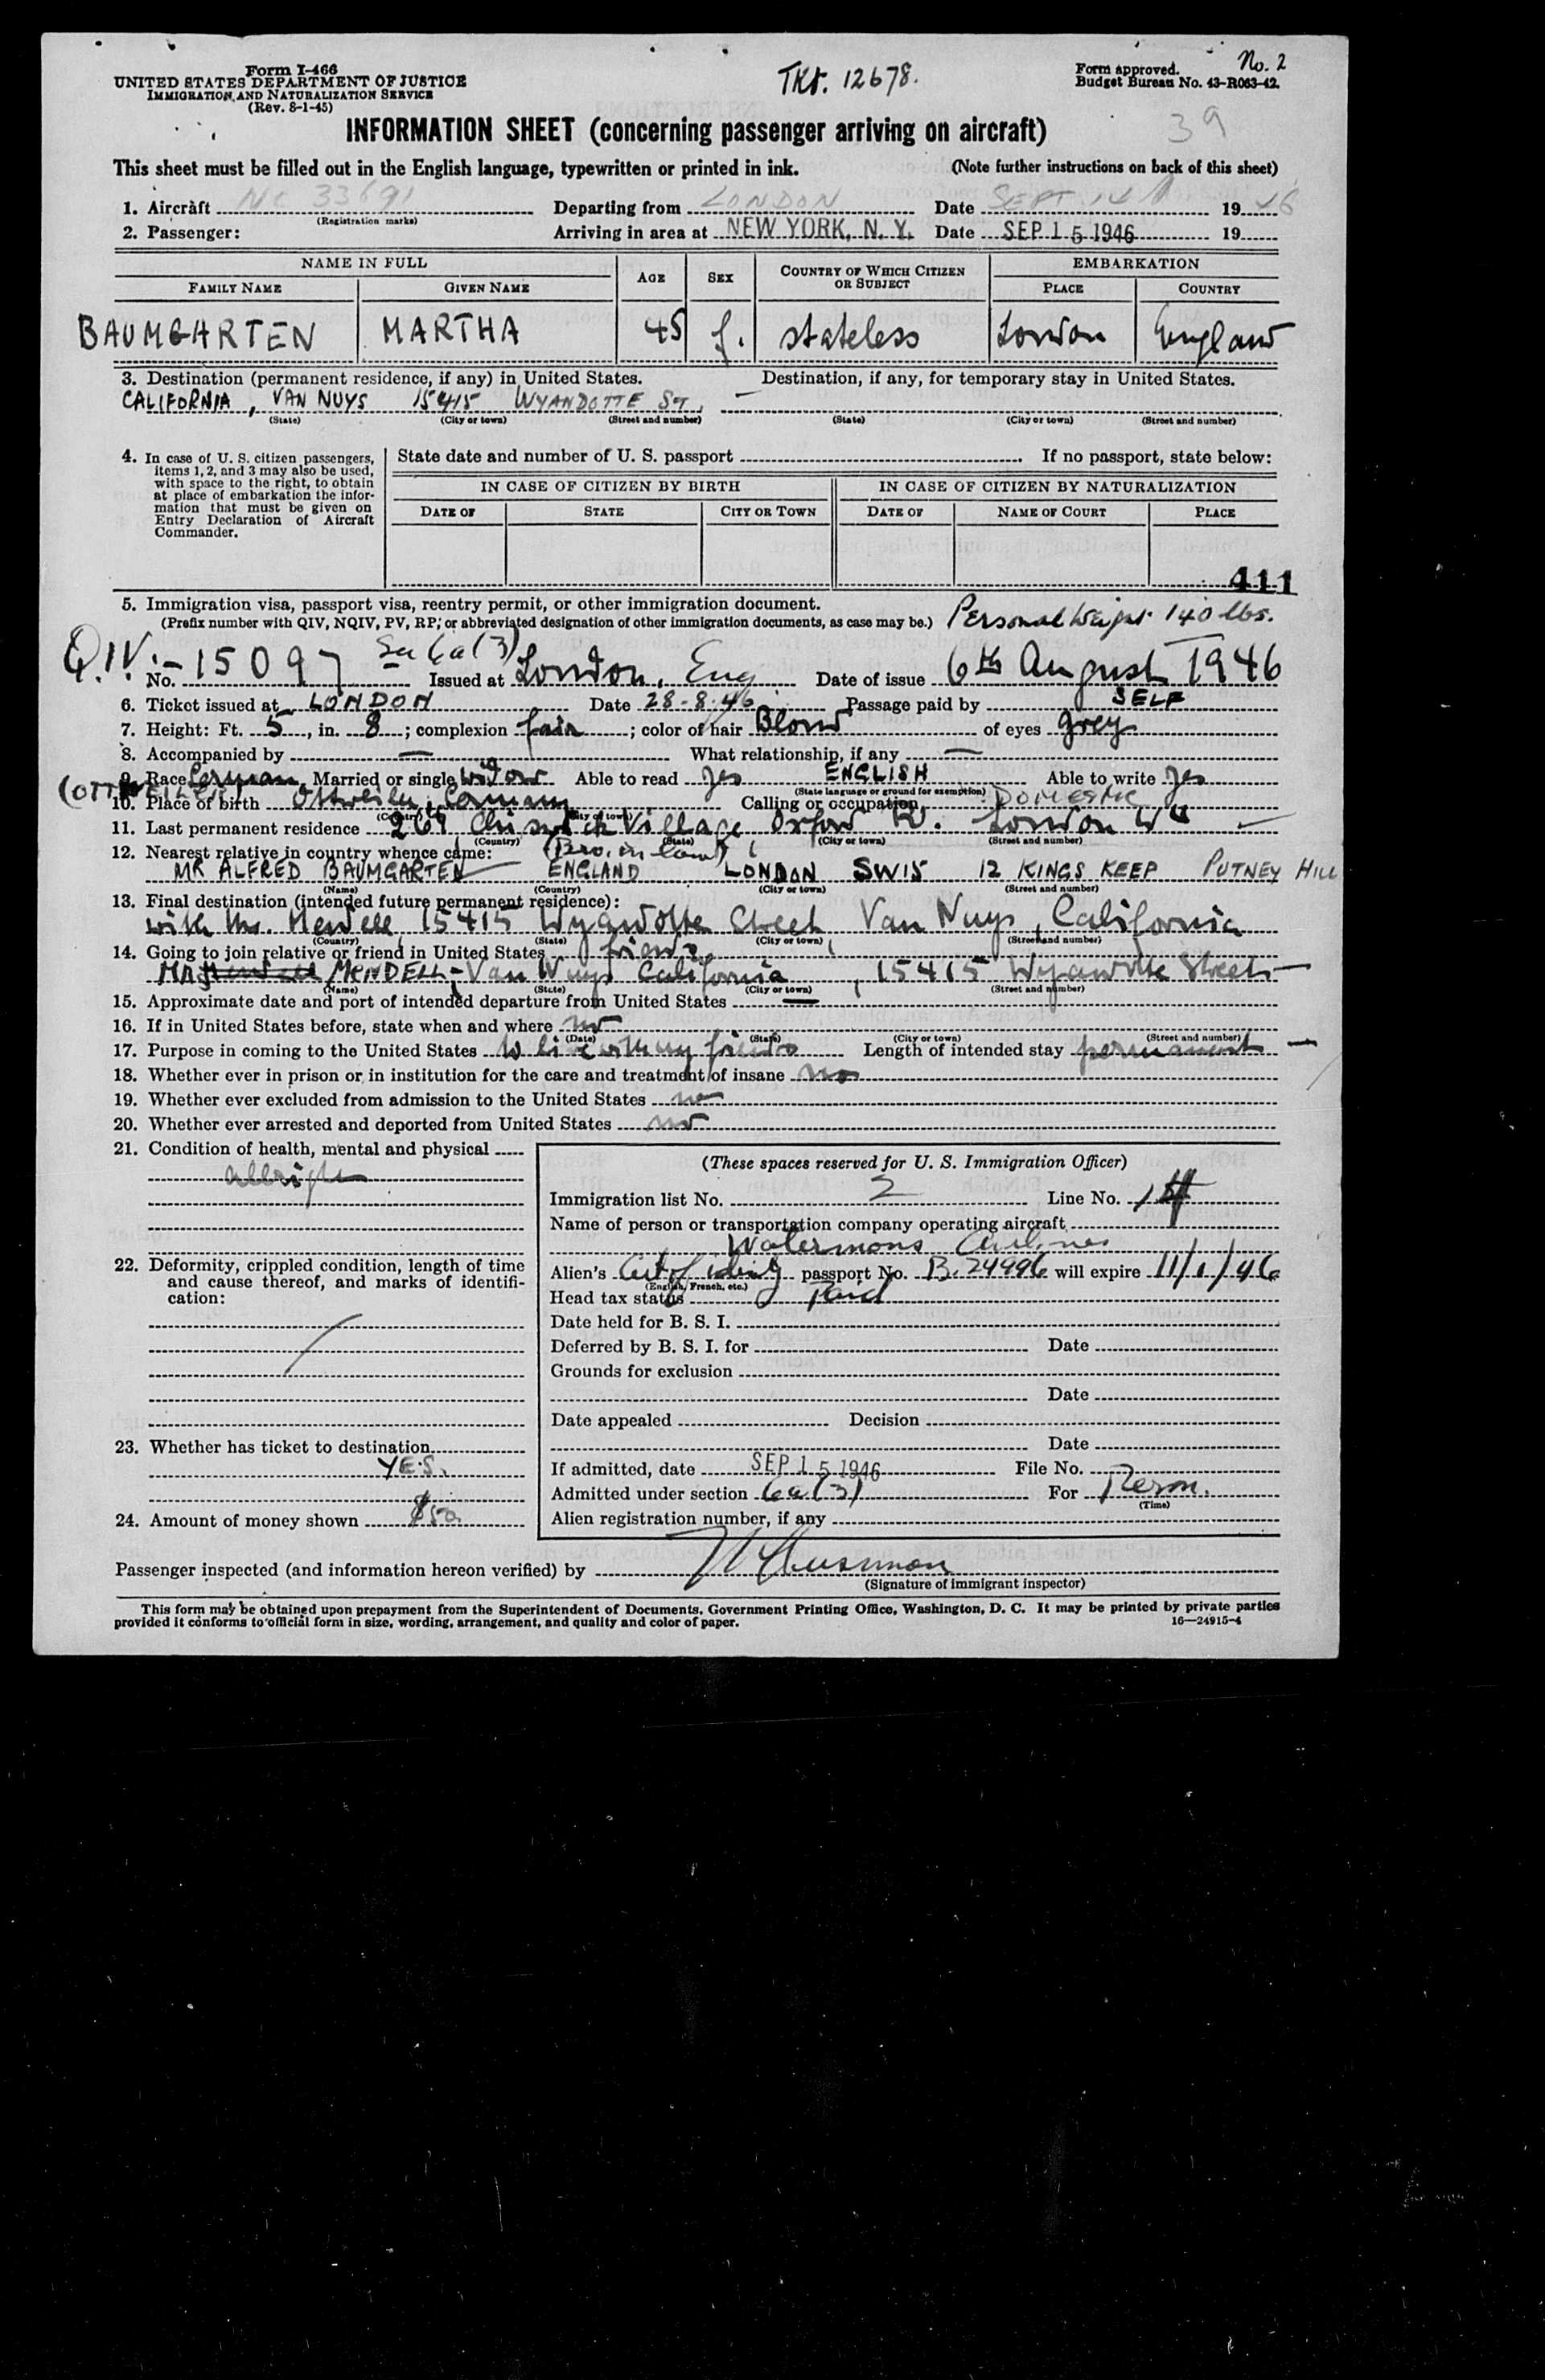 Form I-466
UNITED STATES DEPARTMENT OF JUSTICE
IMMIGRATION AND NATURALIZATION SERVICE
(Rev. 8-1-45)
TKt. 12678.
No. 2
Form approved.
Budget Bureau No. 43-R063-42.
39
INFORMATION SHEET (concerning passenger arriving on aircraft)
This sheet must be filled out in the English language, typewritten or printed in ink. (Note further instructions on back of this sheet)
1. Aircraft NC 33691 Departing from LONDON Date SEPT 14 1946
(Registration marks)
2. Passenger: Arriving in area at NEW YORK, N. Y. Date SEP 15 1946 19
NAME IN FULL AGE SEX COUNTRY OF WHICH CITIZEN OR SUBJECT EMBARKATION
FAMILY NAME GIVEN NAME PLACE COUNTRY
BAUMGARTEN MARTHA 45 f. stateless London England
3. Destination (permanent residence, if any) in United States. Destination, if any, for temporary stay in United States.
CALIFORNIA, VAN NUYS 15415 WYANDOTTE ST, —
(State) (City or town) (Street and number) (State) (City or town) (Street and number)
4. In case of U. S. citizen passengers, items 1, 2, and 3 may also be used, with space to the right, to obtain at place of embarkation the information that must be given on Entry Declaration of Aircraft Commander.
State date and number of U. S. passport If no passport, state below:
IN CASE OF CITIZEN BY BIRTH IN CASE OF CITIZEN BY NATURALIZATION
DATE OF STATE CITY OR TOWN DATE OF NAME OF COURT PLACE
411
5. Immigration visa, passport visa, reentry permit, or other immigration document.
(Prefix number with QIV, NQIV, PV, RP, or abbreviated designation of other immigration documents, as case may be.) Personal Weight 140 lbs.
Sec 6a(3)
Q.I.V.- No. 15097 Issued at London, Eng Date of issue 6th August 1946
6. Ticket issued at LONDON Date 28-8-46 Passage paid by SELF
7. Height: Ft. 5, in. 8; complexion fair; color of hair Blond of eyes grey
8. Accompanied by — What relationship, if any —
9. Race German Married or single widow Able to read yes ENGLISH Able to write yes
(State language or ground for exemption)
(OTTWEILER)
10. Place of birth Ottweiler, Germany Calling or occupation DOMESTIC
(Country) (City or town)
11. Last permanent residence 269 Chiswick Village Oxford R. London W4 —
(Country) (State) (City or town) (Street and number)
12. Nearest relative in country whence came: (Bro. in law)
MR ALFRED BAUMGARTEN ENGLAND LONDON SW15 12 KINGS KEEP PUTNEY HILL
(Name) (Country) (City or town) (Street and number)
13. Final destination (intended future permanent residence):
with Mr. Mendell 15415 Wyandotte Street Van Nuys, California
(Country) (State) (City or town) (Street and number)
14. Going to join relative or friend in United States friend,
MR MENDELL - Van Nuys California, 15415 Wyandotte Street —
(Name) (State) (City or town) (Street and number)
15. Approximate date and port of intended departure from United States —
16. If in United States before, state when and where no
(Date) (State) (City or town) (Street and number)
17. Purpose in coming to the United States to live with my friends Length of intended stay permanent —
18. Whether ever in prison or in institution for the care and treatment of insane no
19. Whether ever excluded from admission to the United States no
20. Whether ever arrested and deported from United States no
21. Condition of health, mental and physical
allright
22. Deformity, crippled condition, length of time and cause thereof, and marks of identification:
23. Whether has ticket to destination
YES.
24. Amount of money shown $50
(These spaces reserved for U. S. Immigration Officer)
Immigration list No. 2 Line No. 1
Name of person or transportation company operating aircraft
Watermans Airlines
Alien's Cert of identy passport No. B.24996 will expire 11/1/46
(English, French, etc.)
Head tax status Paid
Date held for B. S. I.
Deferred by B. S. I. for Date
Grounds for exclusion
Date
Date appealed Decision
Date
If admitted, date SEP 15 1946 File No.
Admitted under section 6a(3) For Perm.
(Time)
Alien registration number, if any
Passenger inspected (and information hereon verified) by
(Signature of immigrant inspector)
This form may be obtained upon prepayment from the Superintendent of Documents, Government Printing Office, Washington, D. C. It may be printed by private parties
provided it conforms to official form in size, wording, arrangement, and quality and color of paper. 16—24915-4